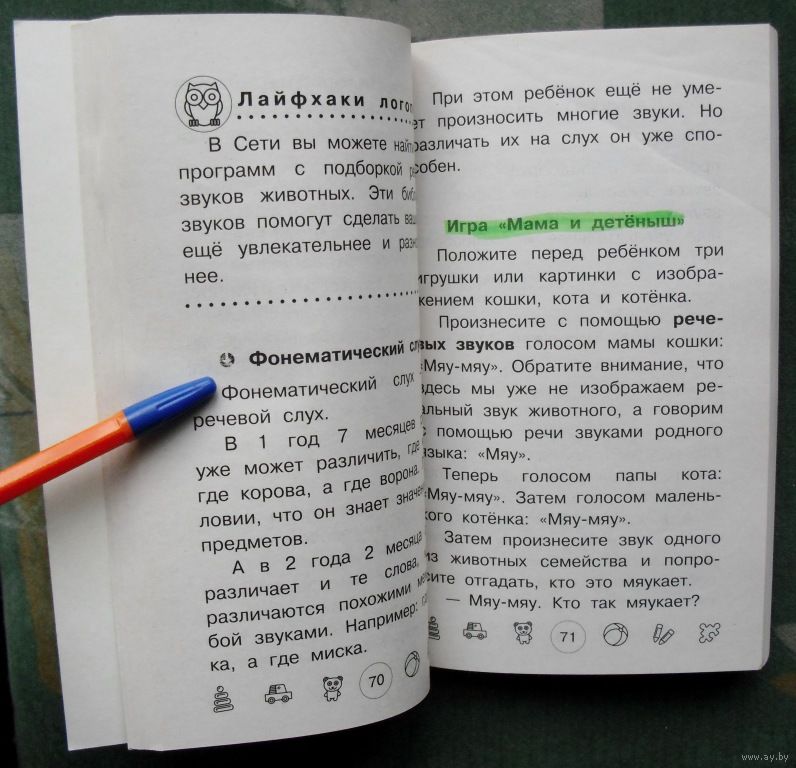 Лайфхаки
В Сети вы можете
программ с подборкой
звуков животных. Эти
звуков помогут сделать
ещё увлекательнее и
нее.
Фонематический
Фонематический слух
речевой слух.
В 1 год 7 месяцев
уже может различить, где
где корова, а где ворона.
ловии, что он знает
предметов.
А в 2 года 2 месяца
различает и те слова,
различаются похожими
бой звуками. Например:
ка, а где миска.
70
При этом ребёнок ещё не уме-
ет произносить многие звуки. Но
различать их на слух он уже спо-
собен.
Игра «Мама и детёныш»
Положите перед ребёнком три
игрушки или картинки с изобра-
жением кошки, кота и котёнка.
Произнесите с помощью рече-
вых звуков голосом мамы кошки:
«Мяу-мяу». Обратите внимание, что
здесь мы уже не изображаем ре-
альный звук животного, а говорим
с помощью речи звуками родного
языка: «Мяу».
Теперь голосом папы кота:
«Мяу-мяу». Затем голосом малень-
кого котёнка: «Мяу-мяу».
Затем произнесите звук одного
из животных семейства и попро-
сите отгадать, кто это мяукает.
— Мяу-мяу. Кто так мяукает?
71
www.ay.by